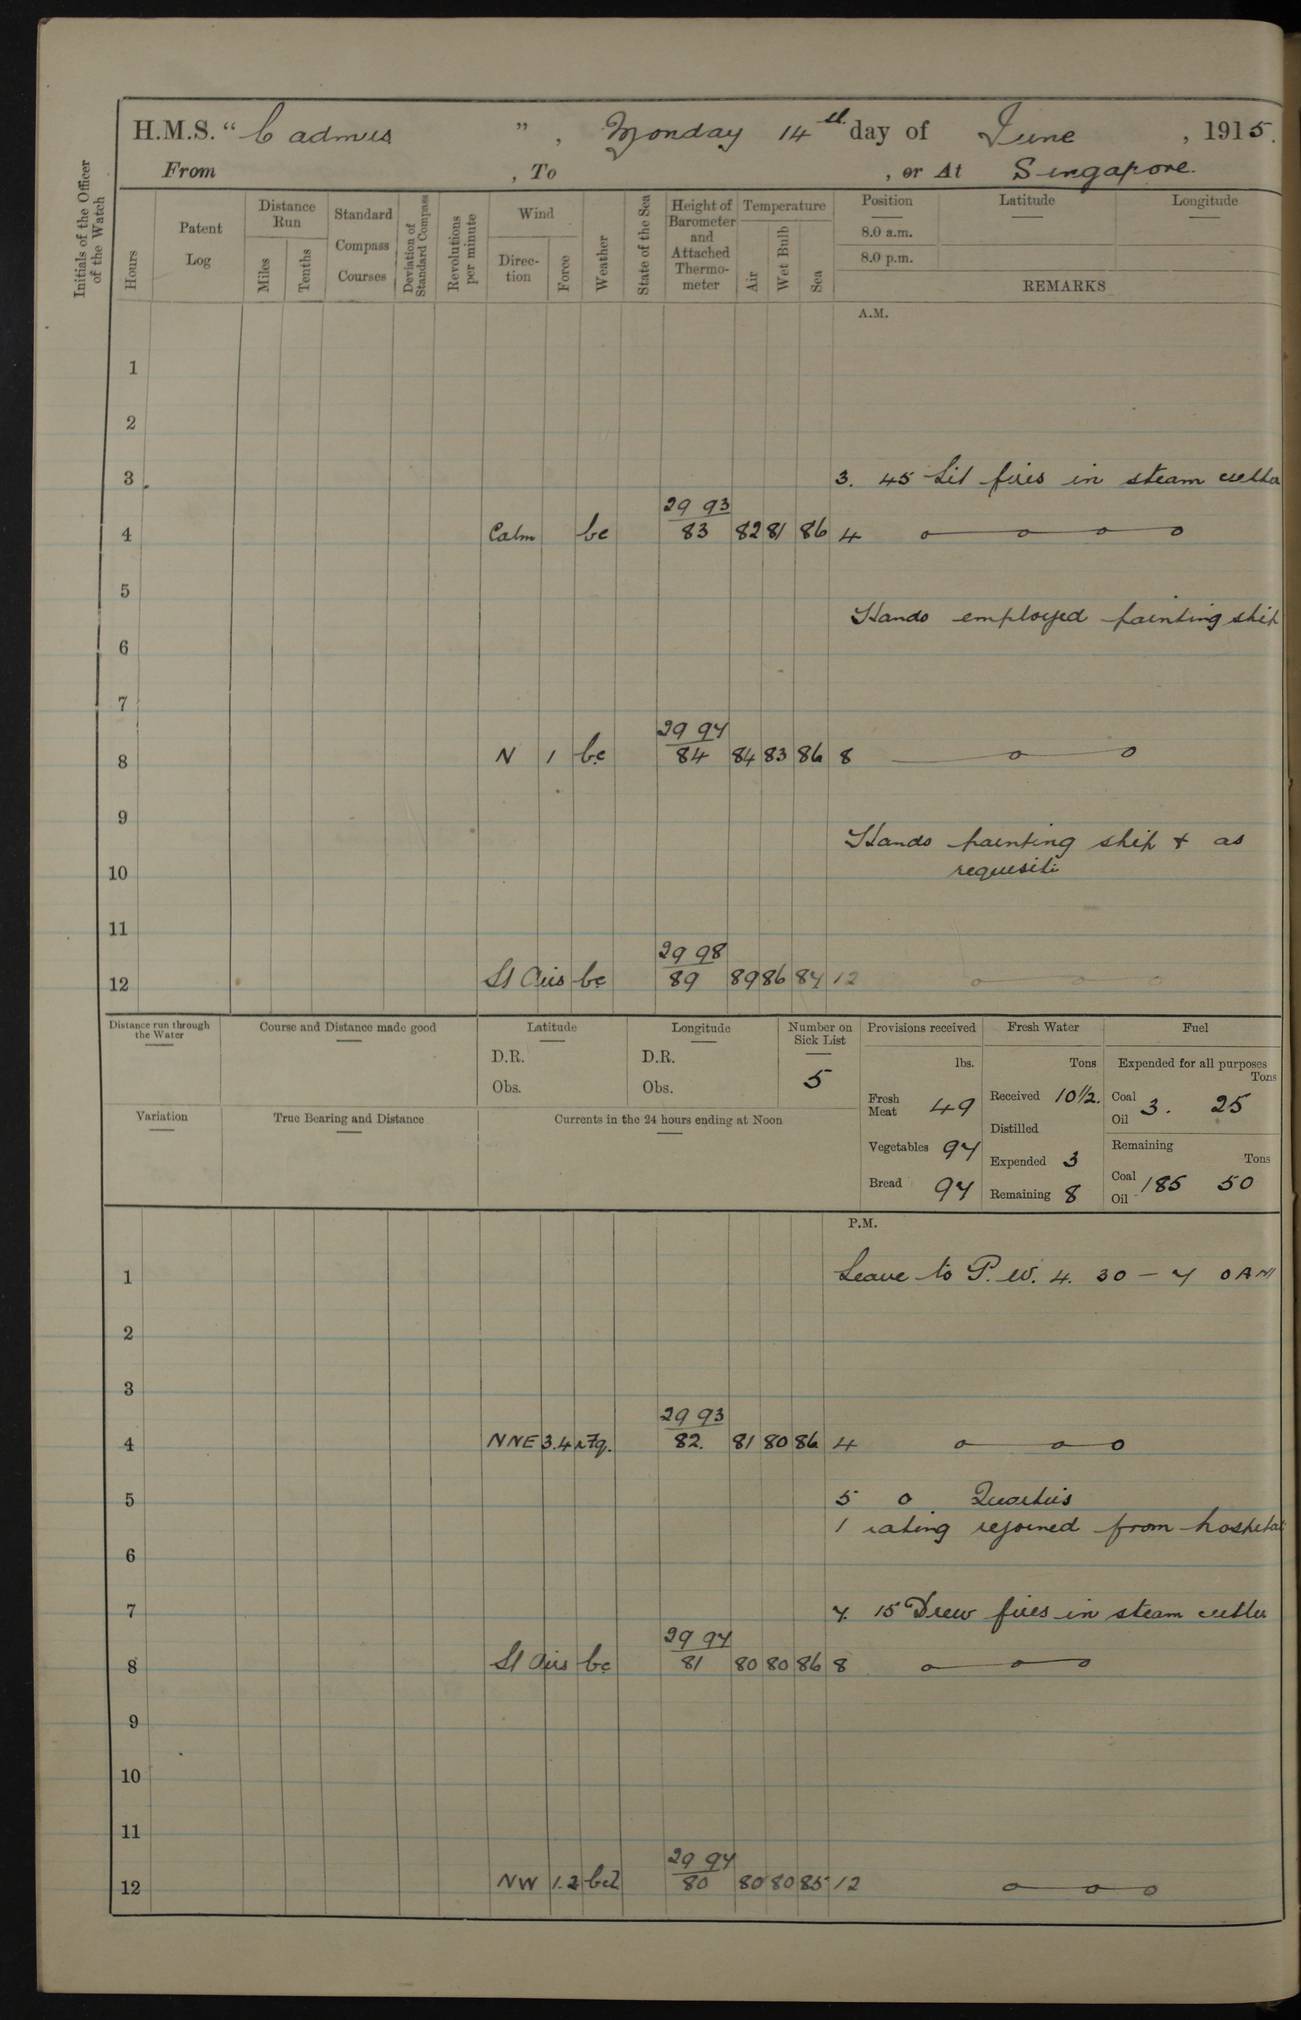 H.M.S. "Cadmus", Monday 14th day of June, 1915.
From , To , or At Singapore.
Initials of the Officer of the Watch
Hours
Patent Log
Distance Run
Miles
Tenths
Standard Compass Courses
Deviation of Standard Compass
Revolutions per minute
Wind
Direction
Force
Weather
State of the Sea
Height of Barometer and Attached Thermometer
Temperature
Air
Wet Bulb
Sea
Position
Latitude
Longitude
8.0 a.m.
8.0 p.m.
REMARKS
A.M.
1
2
3 3. 45 Lit fires in steam cutter
29 93
4 Calm bc 83 82 81 86 4
5
Hands employed painting ship
6
7
29 94
8 N 1 bc 84 84 83 86 8
9
Hands painting ship & as
10 requisite
11
29 98
12 Lt Airs bc 89 89 86 84 12
Distance run through the Water
Course and Distance made good
Latitude
D.R.
Obs.
Longitude
D.R.
Obs.
Number on Sick List
5
Provisions received
lbs.
Fresh Meat 49
Vegetables 97
Bread 97
Fresh Water
Tons
Received 10½.
Distilled
Expended 3
Remaining 8
Fuel
Expended for all purposes
Tons
Coal 3. 25
Oil
Remaining
Tons
Coal 185 50
Oil
Variation
True Bearing and Distance
Currents in the 24 hours ending at Noon
P.M.
1 Leave to P.W. 4. 30 – 7 0 AM
2
3
29 93
4 NNE 3.4 82. 81 80 86 4
5 5 0 Quarters
1 rating rejoined from hospital
6
7 7. 15 Drew fires in steam cutter
29 94
8 Lt Airs bc 81 80 80 86 8
9
10
11
29 94
12 NW 1.2 80 80 80 85 12